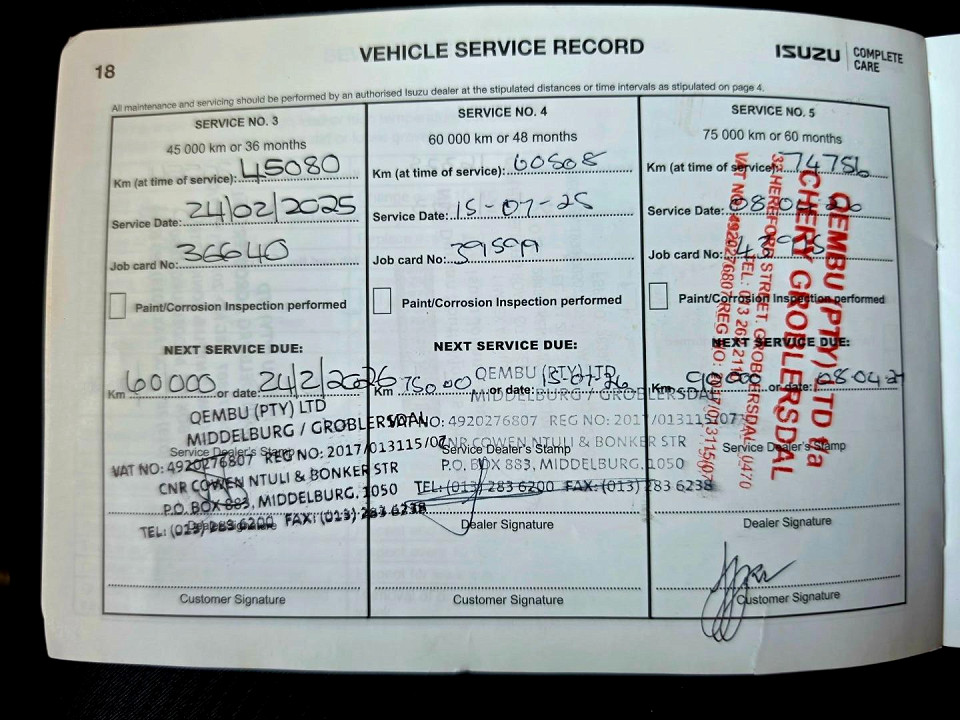 18
VEHICLE SERVICE RECORD
ISUZU COMPLETE CARE
All maintenance and servicing should be performed by an authorised Isuzu dealer at the stipulated distances or time intervals as stipulated on page 4.
SERVICE NO. 3
45 000 km or 36 months
Km (at time of service): 45080
Service Date: 24/02/2025
Job card No: 36640
Paint/Corrosion Inspection performed
NEXT SERVICE DUE:
Km 60000 or date: 24/2/2026
QEMBU (PTY) LTD
MIDDELBURG / GROBLERSDAL
Service Dealer's Stamp
VAT NO: 4920276807 REG NO: 2017/013115/07
CNR COWEN NTULI & BONKER STR
P.O. BOX 883, MIDDELBURG, 1050
TEL: (013) 283 6200 FAX: (013) 283 6238
Dealer Signature
Customer Signature
SERVICE NO. 4
60 000 km or 48 months
Km (at time of service): 60808
Service Date: 15-07-25
Job card No: 39599
Paint/Corrosion Inspection performed
NEXT SERVICE DUE:
Km 75000 or date: 15-07-26
QEMBU (PTY) LTD
MIDDELBURG / GROBLERSDAL
VAT NO: 4920276807 REG NO: 2017/013115/07
CNR COWEN NTULI & BONKER STR
Service Dealer's Stamp
P.O. BOX 883, MIDDELBURG, 1050
TEL: (013) 283 6200 FAX: (013) 283 6238
Dealer Signature
Customer Signature
SERVICE NO. 5
75 000 km or 60 months
Km (at time of service): 74756
Service Date:
Job card No:
Paint/Corrosion Inspection performed
NEXT SERVICE DUE:
Km 90000 or date:
Service Dealer's Stamp
Dealer Signature
Customer Signature
QEMBU (PTY) LTD t/a
CHERY GROBLERSDAL
32 HEREFORD STREET, GROBLERSDAL, 0470
TEL: 013 262
VAT NO: 4920276807 REG NO: 2017/013115/07